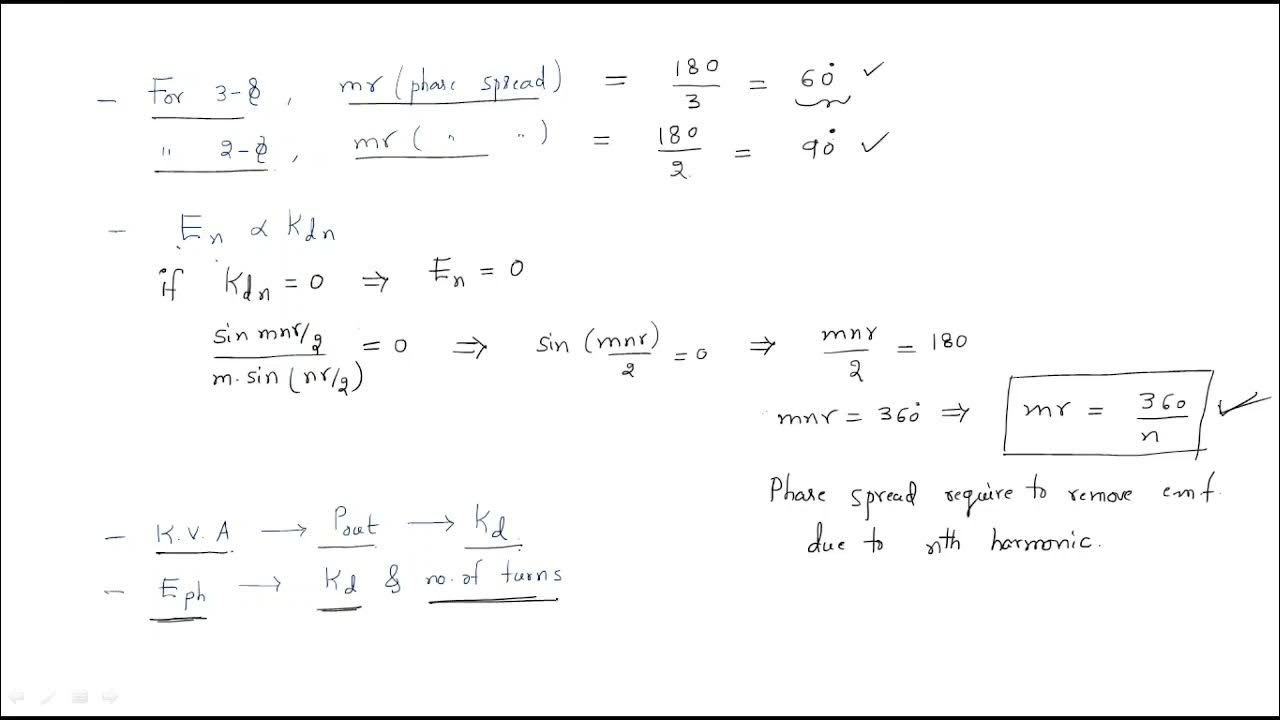 - For 3-ϕ, mr (phase spread) = 180/3 = 60° ✓
" 2-ϕ, mr ( " " ) = 180/2 = 90° ✓
- En ∝ Kdn
if Kdn = 0 ⇒ En = 0
sin mnr/2 / m.sin (nr/2) = 0 ⇒ sin (mnr)/2 = 0 ⇒ mnr/2 = 180
mnr = 360° ⇒ mr = 360/n ✓
Phase spread require to remove emf.
due to nth harmonic.
- K.V.A → Pout → Kd.
- Eph → Kd & no. of turns